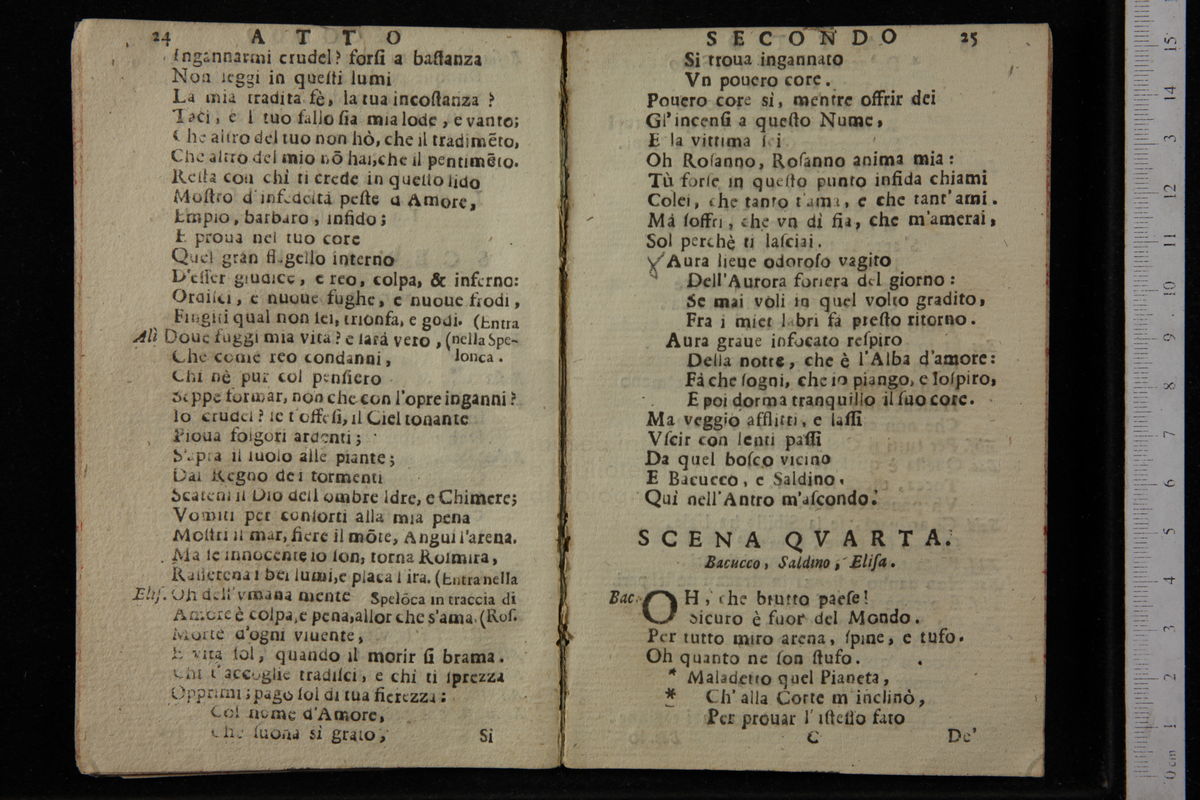 24 ATTO
Ingannarmi crudel? forſi a baſtanza
Non leggi in queſti lumi
La mia tradita fè, la tua incoſtanza?
Taci, e l tuo fallo ſia mia lode, e vanto;
Che altro del tuo non hò, che il tradimẽto,
Che altro del mio nõ hai, che il pentimẽto.
Reſta con chi ti crede in queſto lido
Moſtro d'infedeltà peſte d Amore,
Empio, barbaro, infido;
E proua nel tuo core
Quel gran flagello interno
D'eſſer giudice, e reo, colpa, & inferno:
Ordiſci, e nuoue fughe, e nuoue frodi,
Fingiti qual non ſei, trionfa, e godi. (Entra
Alì Doue fuggi mia vita? e ſarà vero, (nella Spe-
Che come reo condanni, lonca.
Chi nè pur col penſiero
Seppe formar, non che con l'opre inganni?
Io crudel? ſe t'offeſi, il Ciel tonante
Pioua folgori ardenti;
S'apra il ſuolo alle piante;
Dal Regno dei tormenti
Scateni il Dio dell ombre Idre, e Chimere;
Vomiti per conſorti alla mia pena
Moſtri il mar, fiere il mõte, Angui l'arena.
Ma ſe innocente io ſon, torna Roſmira,
Raſſerena i bei lumi, e placa l ira. (Entra nella
Eliſ. Oh dell'vmana mente Spelõca in traccia di
Amore è colpa, e pena, allor che s'ama. (Roſ.
Morte d'ogni viuente,
E vita ſol, quando il morir ſi brama.
Chi t'accoglie tradiſci, e chi ti ſprezza
Opprimi; pago ſol di tua fierezza:
Col nome d'Amore,
Che ſuona sì grato,
Si
SECONDO 25
Si troua ingannato
Vn pouero core.
Pouero core sì, mentre offrir dei
Gl'incenſi a queſto Nume,
E la vittima ſei
Oh Roſanno, Roſanno anima mia:
Tù forſe in queſto punto infida chiami
Colei, che tanto t'ama, e che tant'ami.
Mà ſoffri, che vn dì fia, che m'amerai,
Sol perchè ti laſciai.
Aura lieue odoroſo vagito
Dell'Aurora foriera del giorno:
Se mai voli in quel volto gradito,
Fra i miei labri fà preſto ritorno.
Aura graue infocato reſpiro
Della notte, che è l'Alba d'amore:
Fà che ſogni, che io piango, e ſoſpiro,
E poi dorma tranquillo il ſuo core.
Ma veggio afflitti, e laſſi
Vſcir con lenti paſſi
Da quel boſco vicino
E Bacucco, e Saldino.
Quì nell'Antro m'aſcondo.
SCENA QVARTA.
Bacucco, Saldino, Eliſa.
Bac. OH, che brutto paeſe!
Sicuro è fuor del Mondo.
Per tutto miro arena, ſpine, e tufo.
Oh quanto ne ſon ſtufo.
* Maladetto quel Pianeta,
* Ch'alla Corte m inclinò,
Per prouar l'iſteſſo fato
C De'
0 cm 1 2 3 4 5 6 7 8 9 10 11 12 13 14 15